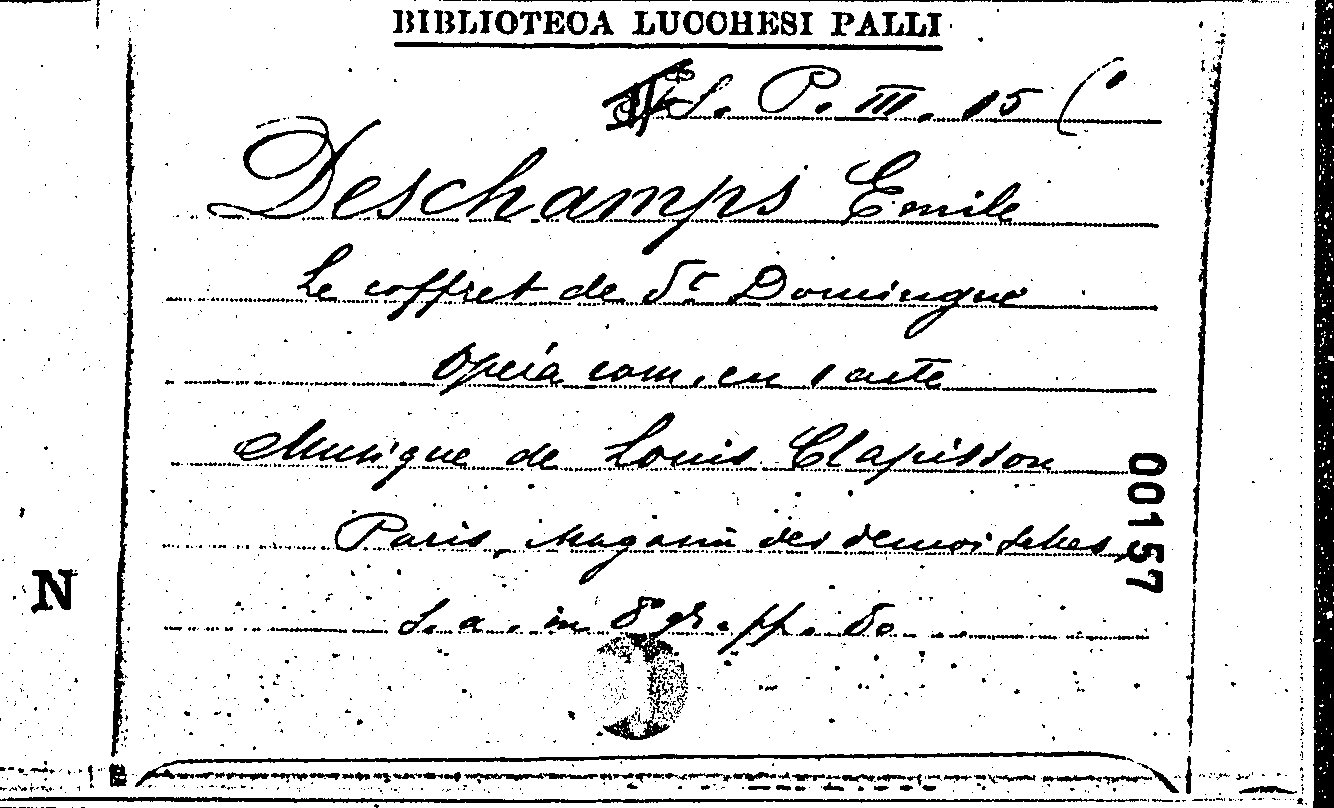 BIBLIOTECA LUCCHESI PALLI
S. P. III. 15 (1
Deschamps Emile
Le coffret de St Domingue
Opéra com. en 1 acte
Musique de Louis Clapisson
Paris, Magasin des demoiselles,
s. a. in 8° gr. pp. 60
00157
N